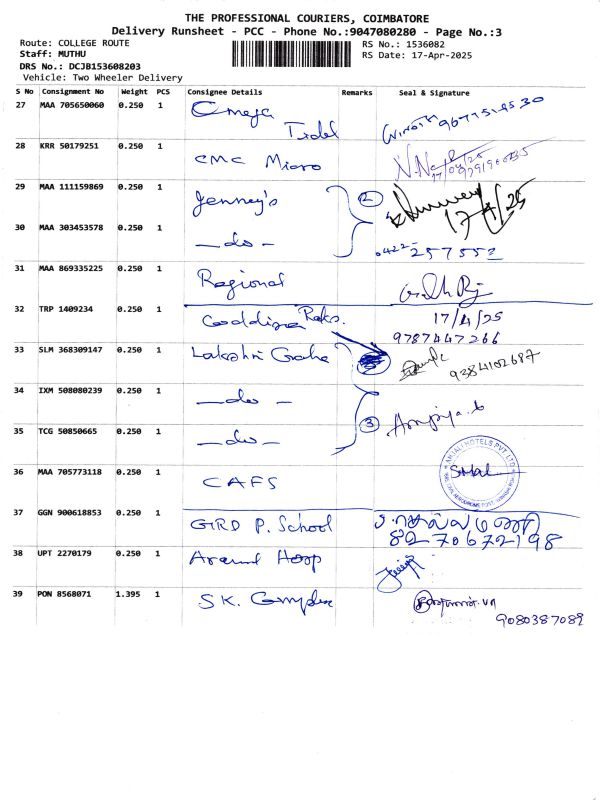 THE PROFESSIONAL COURIERS, COIMBATORE
Delivery Runsheet - PCC - Phone No.:9047080280 - Page No.:3
Route: COLLEGE ROUTE RS No.: 1536082
Staff: MUTHU RS Date: 17-Apr-2025
DRS No.: DCJB153608203
Vehicle: Two Wheeler Delivery
S No Consignment No Weight PCS Consignee Details Remarks Seal & Signature
27 MAA 705650060 0.250 1 Omega
Tidel
28 KRR 50179251 0.250 1 CMC Micro
29 MAA 111159869 0.250 1 Jenney's 2
17/4/25
30 MAA 303453578 0.250 1 - do - 0422-257552
31 MAA 869335225 0.250 1 Regional
32 TRP 1409234 0.250 1 17/4/25
9787447266
33 SLM 368309147 0.250 1 Lakshmi 9384102687
34 IXM 508080239 0.250 1 - do -
3
35 TCG 50850665 0.250 1 - do -
36 MAA 705773118 0.250 1 CAFS
37 GGN 900618853 0.250 1 GIRD P. School
8270672198
38 UPT 2270179 0.250 1 Aravind Hosp
39 PON 8568071 1.395 1 SK. Complex
9080387089